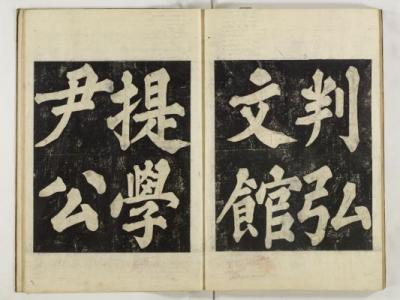 判弘
文館
提學
尹公